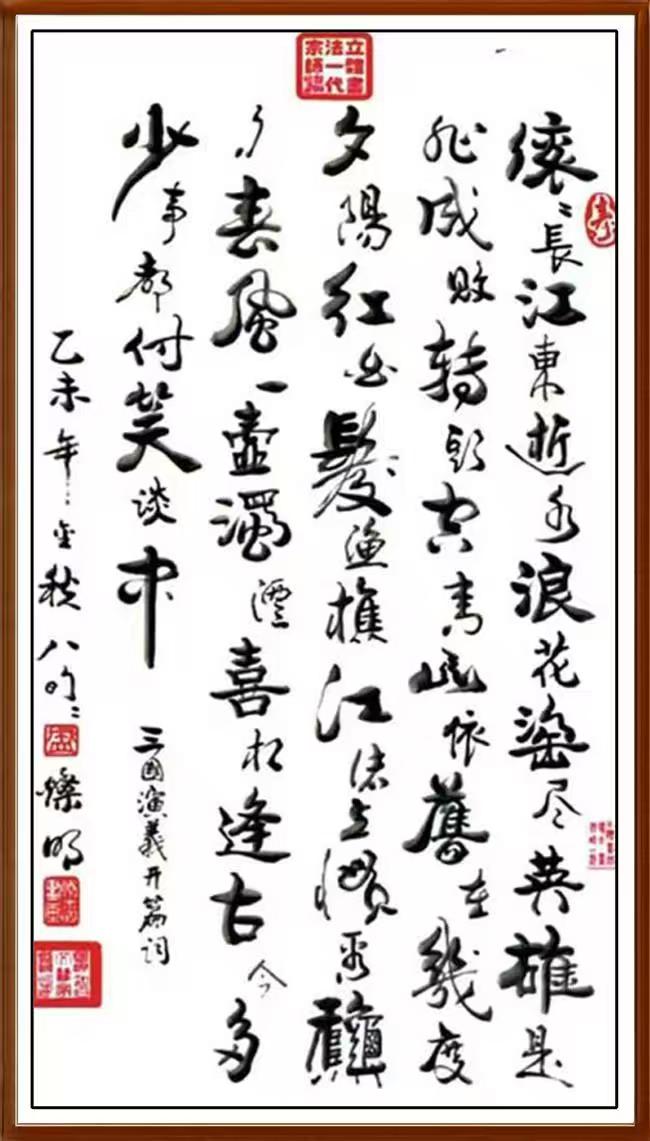 立體書法一代宗師
壽
滚〻長江東逝水浪花淘尽英雄是
非成敗轉頭空青山依舊在幾度
夕陽紅白髮漁樵江渚上慣看龝
月春風一壺濁酒喜相逢古今多
少事都付笑談中
三國演義开篇词
乙未年金秋八旬
燦明